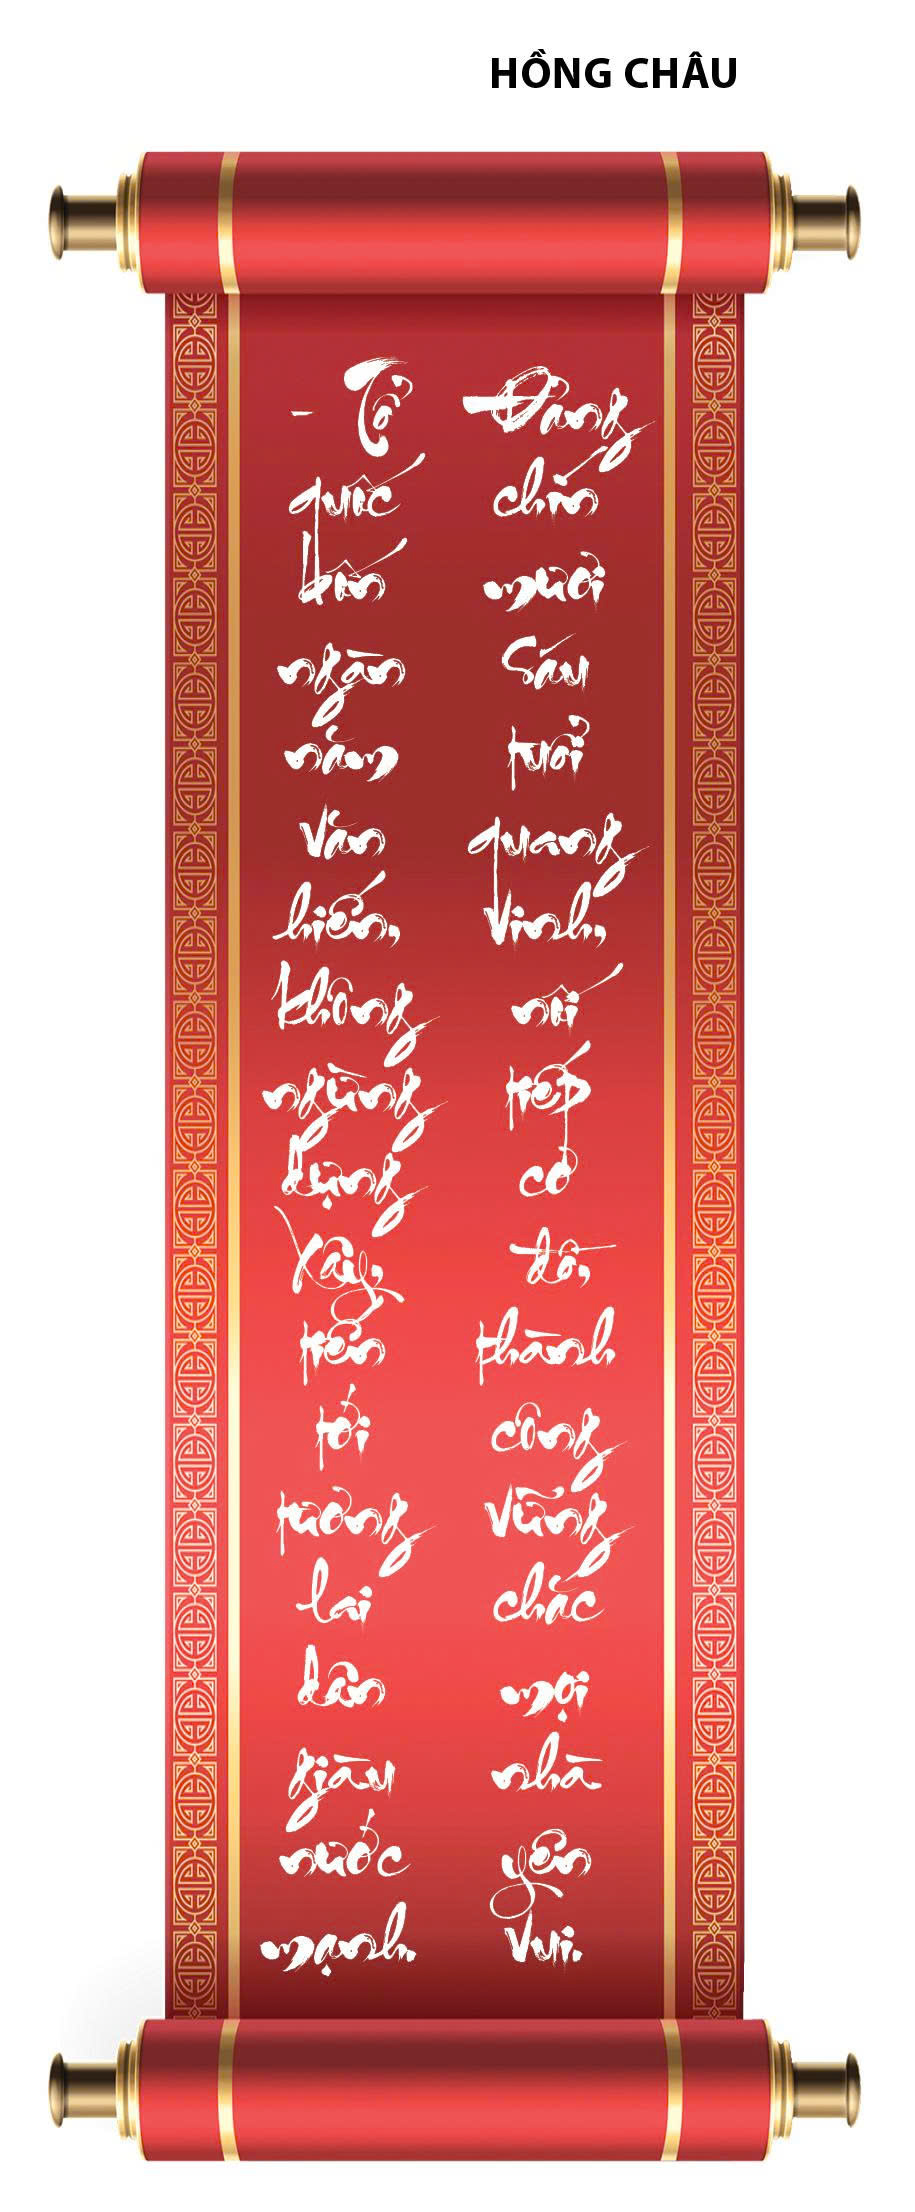 HỒNG CHÂU
- Tổ quốc bốn ngàn năm văn hiến, không ngừng dựng xây, tiến tới tương lai dân giàu nước mạnh.
Đảng chín mươi sáu tuổi quang vinh, nối tiếp cơ đồ, thành công vững chắc mọi nhà yên vui.